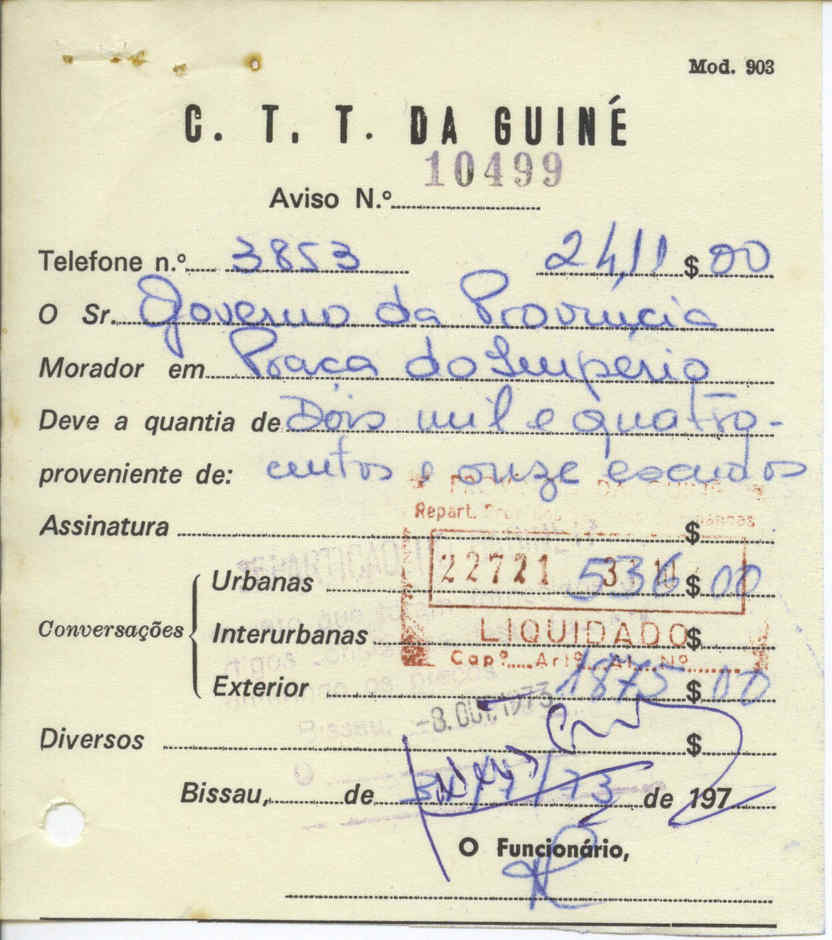 Mod. 903
C. T. T. DA GUINÉ
10499
Aviso N.º
Telefone n.º 3853 2411 $ 00
O Sr. Governo da Provincia
Morador em Praca do Império
Deve a quantia de Dois mil e quatro-
proveniente de: centos e onze escudos
Repart.
Assinatura $
22721 3 11
Urbanas 536 $ 00
Conversações Interurbanas $
LIQUIDADO
Cap.º Art.º Al. Nº
Exterior 1875 $ 00
Bissau, -8. OUT. 1973
Diversos $
Bissau, de /73 de 197
O Funcionário,